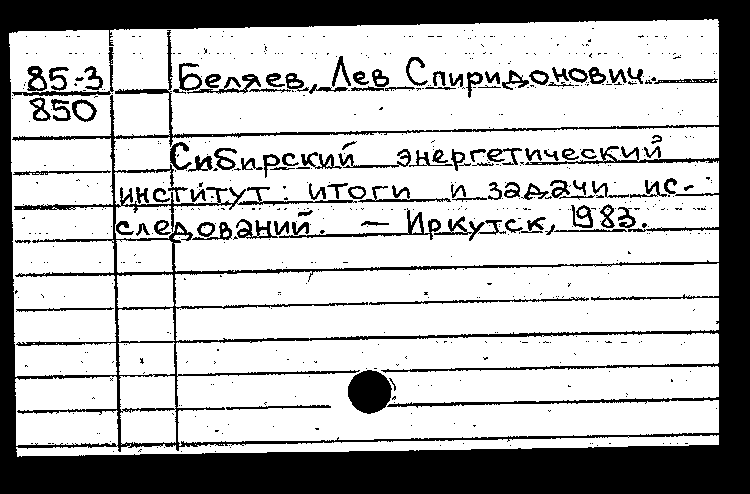 85-3 Беляев, Лев Спиридонович.
850
Сибирский энергетический
институт: итоги и задачи ис-
следований. — Иркутск, 1983.